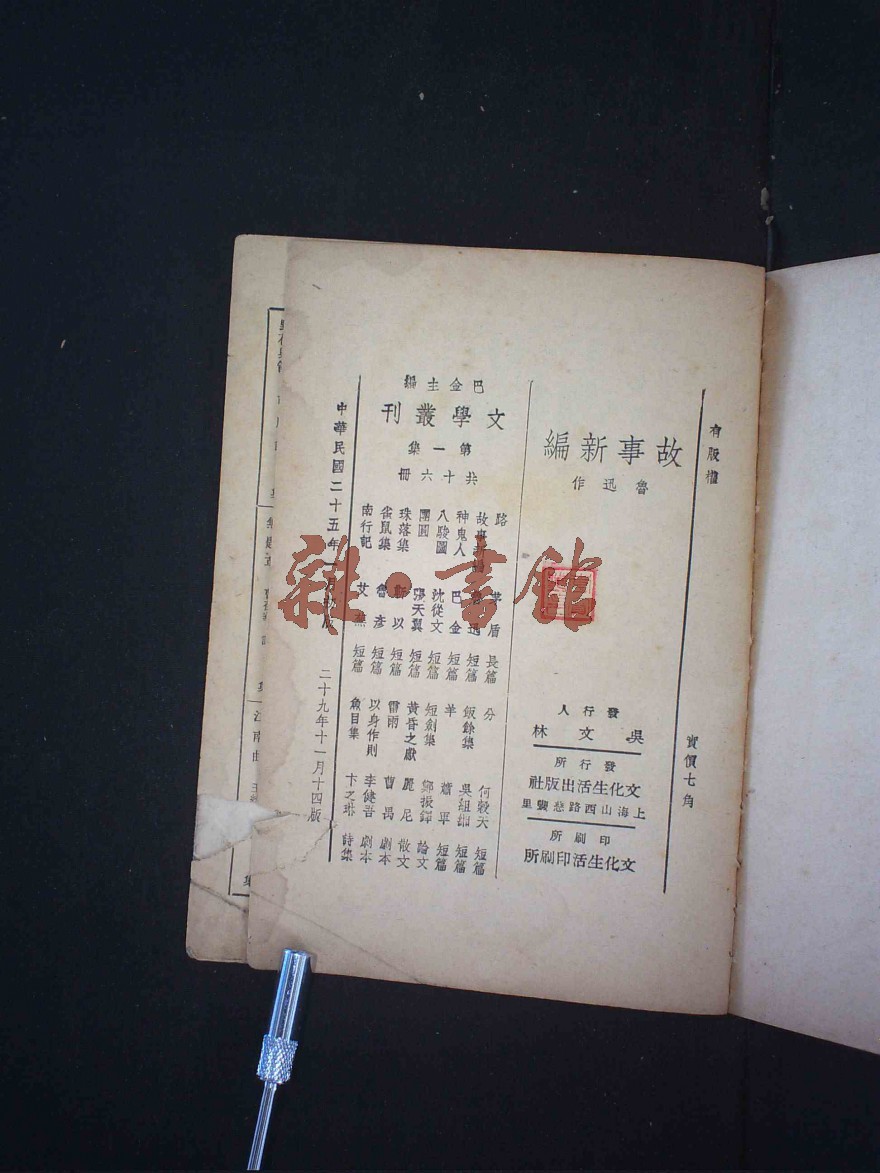 有版權
實價七角
故事新編
魯迅作
發行人
吳文林
發行所
文化生活出版社
上海山西路慈豐里
印刷所
文化生活印刷所
巴金主編
文學叢刊
第一集
共十六冊
路 茅盾 長篇
故事新編 魯迅 短篇
神鬼人 巴金 短篇
八駿圖 沈從文 短篇
團圓 張天翼 短篇
珠落集 靳以 短篇
雀鼠集 魯彥 短篇
南行記 艾蕪 短篇
分 何穀天 短篇
飯餘集 吳組緗 短篇
羊 蕭軍 短篇
短劍集 鄭振鐸 論文
黃昏之獻 麗尼 散文
雷雨 曹禺 劇本
以身作則 李健吾 劇本
魚目集 卞之琳 詩集
中華民國二十五年一月初版
二十九年十一月十四版
雜·書館